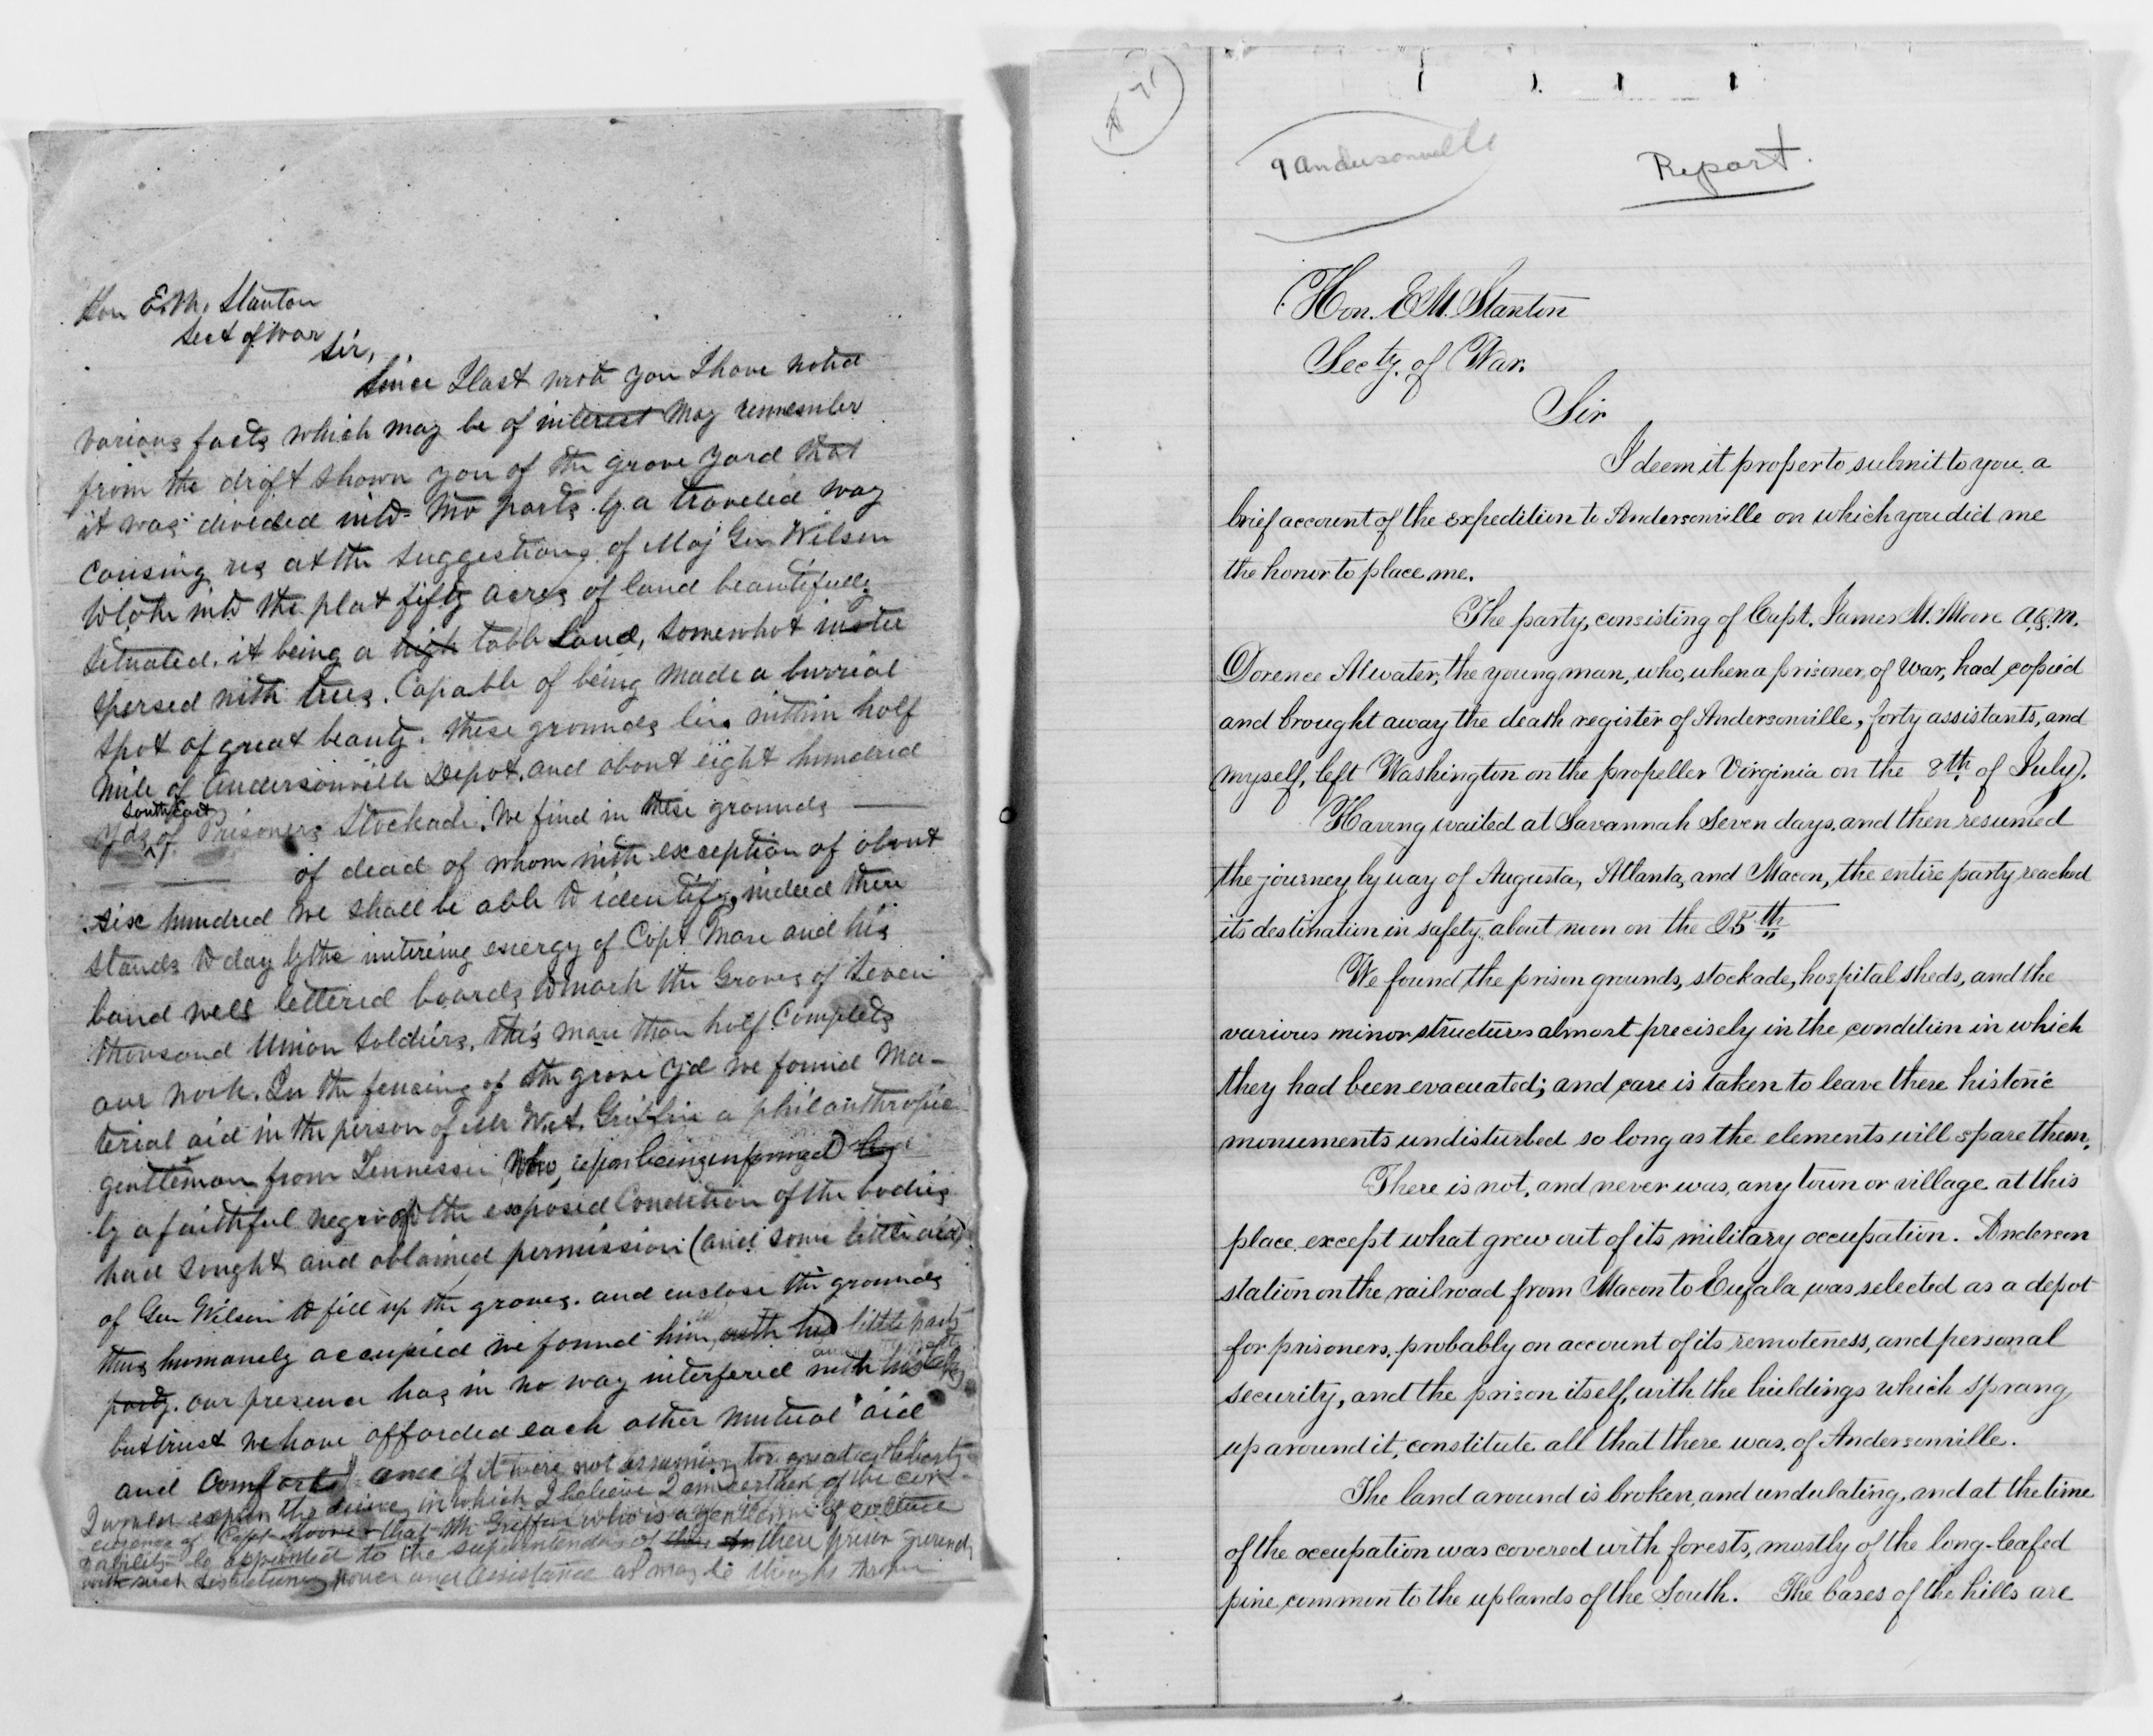 Hon E.M. Stanton
Sect of War
Sir,
Since I last wrote you I have noted
various facts which may be of interest May remember
from the drift shown you of the grave yard that
it was divided into two parts by a traveled way
causing us at the suggestion of Maj Gen Wilson
to take into the plat fifty acres of land beautifully
situated, it being a high table land, somewhat inter
spersed with trees. Capable of being made a burrial
spot of great beauty. these grounds lie within half
mile of Andersonville Depot, and about eight hundred
South East
yds of Prisoners Stockade. We find in these grounds ——
—— —— of dead of whom with exception of about
six hundred we shall be able to identify, indeed there
stands to day by the untireing energy of Capt Moore and his
band well lettered boards to mark the Graves of Seven
thousand Union Soldiers, this more than half completes
our work. In the fenceing of the grave yd we found Ma-
terial aid in the person of Mr W.A. Griffin a philanthropic
gentleman from Tennessee, Who, upon being informed by
by a faithful negro of the exposed Condition of the bodies
had sought and obtained permission (and some little aid)
of Gen Wilson to fill up the graves. and enclose the grounds
thus humanely occupied we found him, with his little party
party. our presence has in no way interfered with his
but trust we have afforded each other mutual aid
and Comforts and if it were not assuming too great a liberty
I would express the desire in which I believe I am certain of the con-
currence of Capt Moore that Mr Griffin who is a gentleman of culture
& ability be appointed to the superintendence of these prison grounds
with such discretionary power and assistance as may be thought proper
9 Andersonville
Report.
Hon. E M. Stanton
Secty. of War.
Sir
I deem it proper to submit to you a
brief account of the expedition to Andersonville on which you did me
the honor to place me.
The party, consisting of Capt. James M. Moore A.Q.M.
Dorence Atwater, the young man, who, when a prisoner of War, had copied
and brought away the death register of Andersonville, forty assistants, and
myself, left Washington on the propeller Virginia on the 8th of July.
Having waited at Savannah Seven days, and then resumed
the journey by way of Augusta, Atlanta, and Macon, the entire party reached
its destination in safety about noon on the 25th
We found the prison grounds, stockade, hospital sheds, and the
various minor structures almost precisely in the condition in which
they had been evacuated; and care is taken to leave there historic
monuments undisturbed so long as the elements will spare them.
There is not, and never was, any town or village at this
place, except what grew out of its military occupation. Anderson
station on the railroad from Macon to Eufala was selected as a depot
for prisoners, probably on account of its remoteness, and personal
security, and the prison itself, with the buildings which sprang
up around it, constitute all that there was, of Andersonville.
The land around is broken, and undulating, and at the time
of the occupation was covered with forests, mostly of the long-leafed
pine common to the uplands of the South. The bases of the hills are